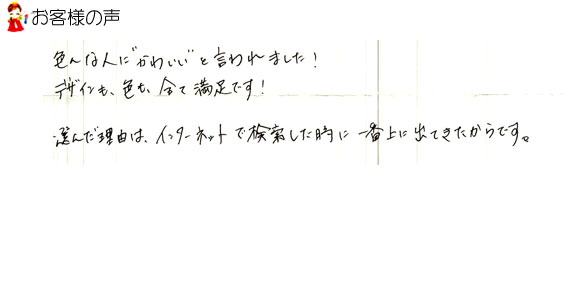 お客様の声
色んな人に"かわいい"と言われました！
デザインも、色も、全て満足です！
選んだ理由は、インターネットで検索した時に一番上に出てきたからです。